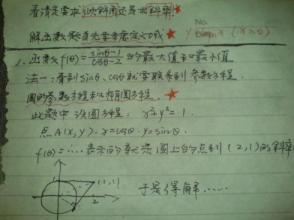 看清是求倾斜角还是求斜率
解函数题首先要考虑定义域 y
1. 函数 f(θ)= sinθ-1 / cosθ-2 的最大值和最小值
法一: 看到 sinθ、cosθ 就要联系到参数方程
圆的参数方程和椭圆方程.
此题中为圆方程: x²+y²=1.
点A(x,y). x=cosθ. y=sinθ.
f(θ)=……表示的就是圆上的点到(2,1)的斜率
(2,1)
2
于是得解……